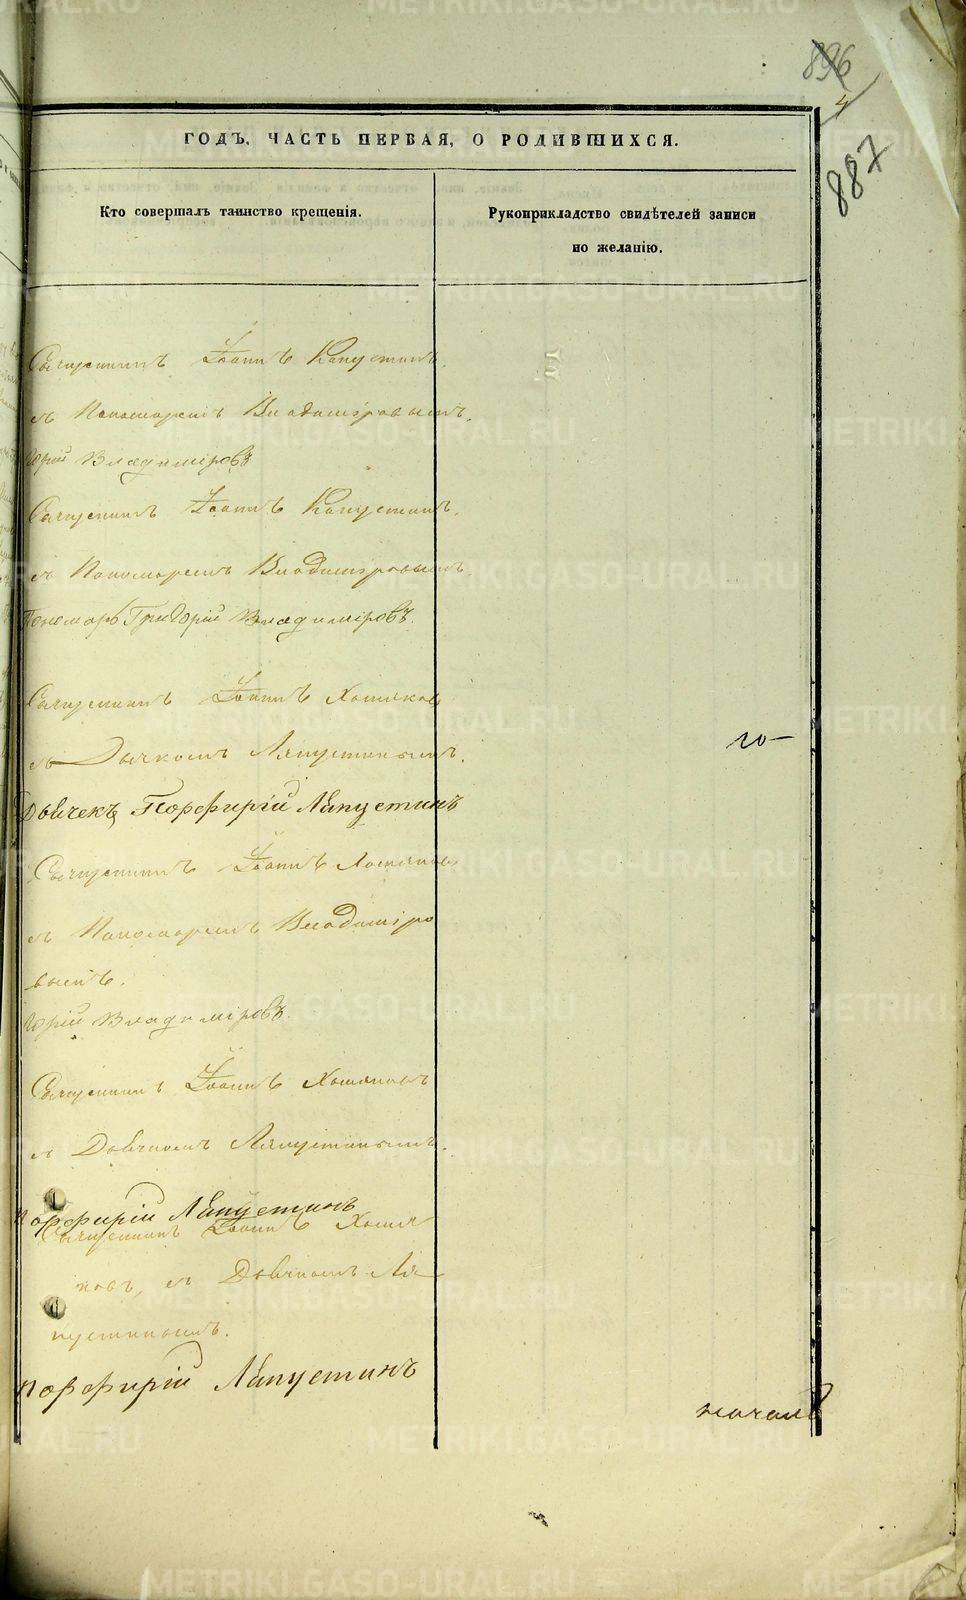 896
4
887
ГОДЪ, ЧАСТЬ ПЕРВАЯ, О РОДИВШИХСЯ.
Кто совершалъ таинство крещенія.
Рукоприкладство свидѣтелей записи
по желанію.
Священникъ Іоаннъ Капустинъ
съ Пономаремъ Владиміровымъ.
Владиміровъ
Священникъ Іоаннъ Капустинъ,
съ Пономаремъ Владиміровымъ.
Пономарь Григорій Владиміровъ.
Священникъ Іоаннъ Хомяковъ
съ Дьячкомъ Ляпустинымъ.
го-
Дьячекъ Порфирій Ляпустинъ
Священникъ Іоаннъ Хомяковъ
съ Пономаремъ Владиміро
вымъ.
Владиміровъ.
Священникъ Іоаннъ Хомяковъ
съ Дьячкомъ Ляпустинымъ.
Порфирій Ляпустинъ
Священникъ Іоаннъ Хомя
ковъ, съ Дьячкомъ Ля
пустинымъ.
Порфирій Ляпустинъ
METRIKI.GASO-URAL.RU